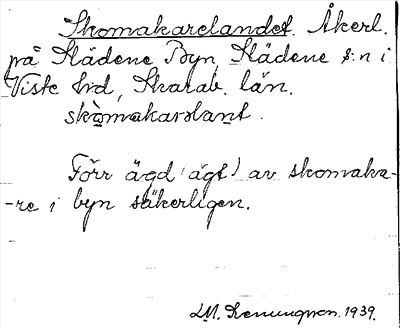 Skomakarelandet. Åkerl.
på Slädene Byn, Slädene s:n i
Viste hrd, Skarab. län.
skòmakarslant.
Förr ägd (ägt) av skomaka-
-re i byn säkerligen.
1939.